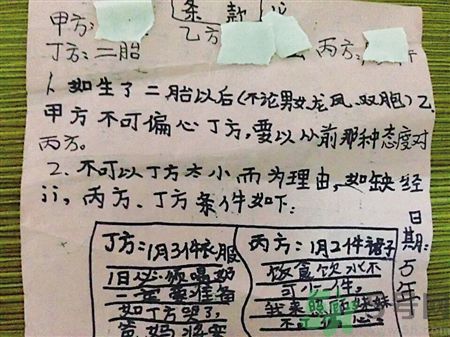 条款
甲方:
乙方
丙方:
丁方:二胎
1、如生了二胎以后(不论男女龙凤、双胞)乙、
甲方不可偏心丁方,要以从前那种态度对
丙方。
2、不可以丁方太小而为理由,如缺经
济,丙方、丁方条件如下:
丁方:1月3件衣服
1日必须喝奶
一定要准备
如丁方哭了,
爸妈
丙方:1月2件裙子
饭食饮水不
可少一件,
我来照顾妹妹
不
日期:万年